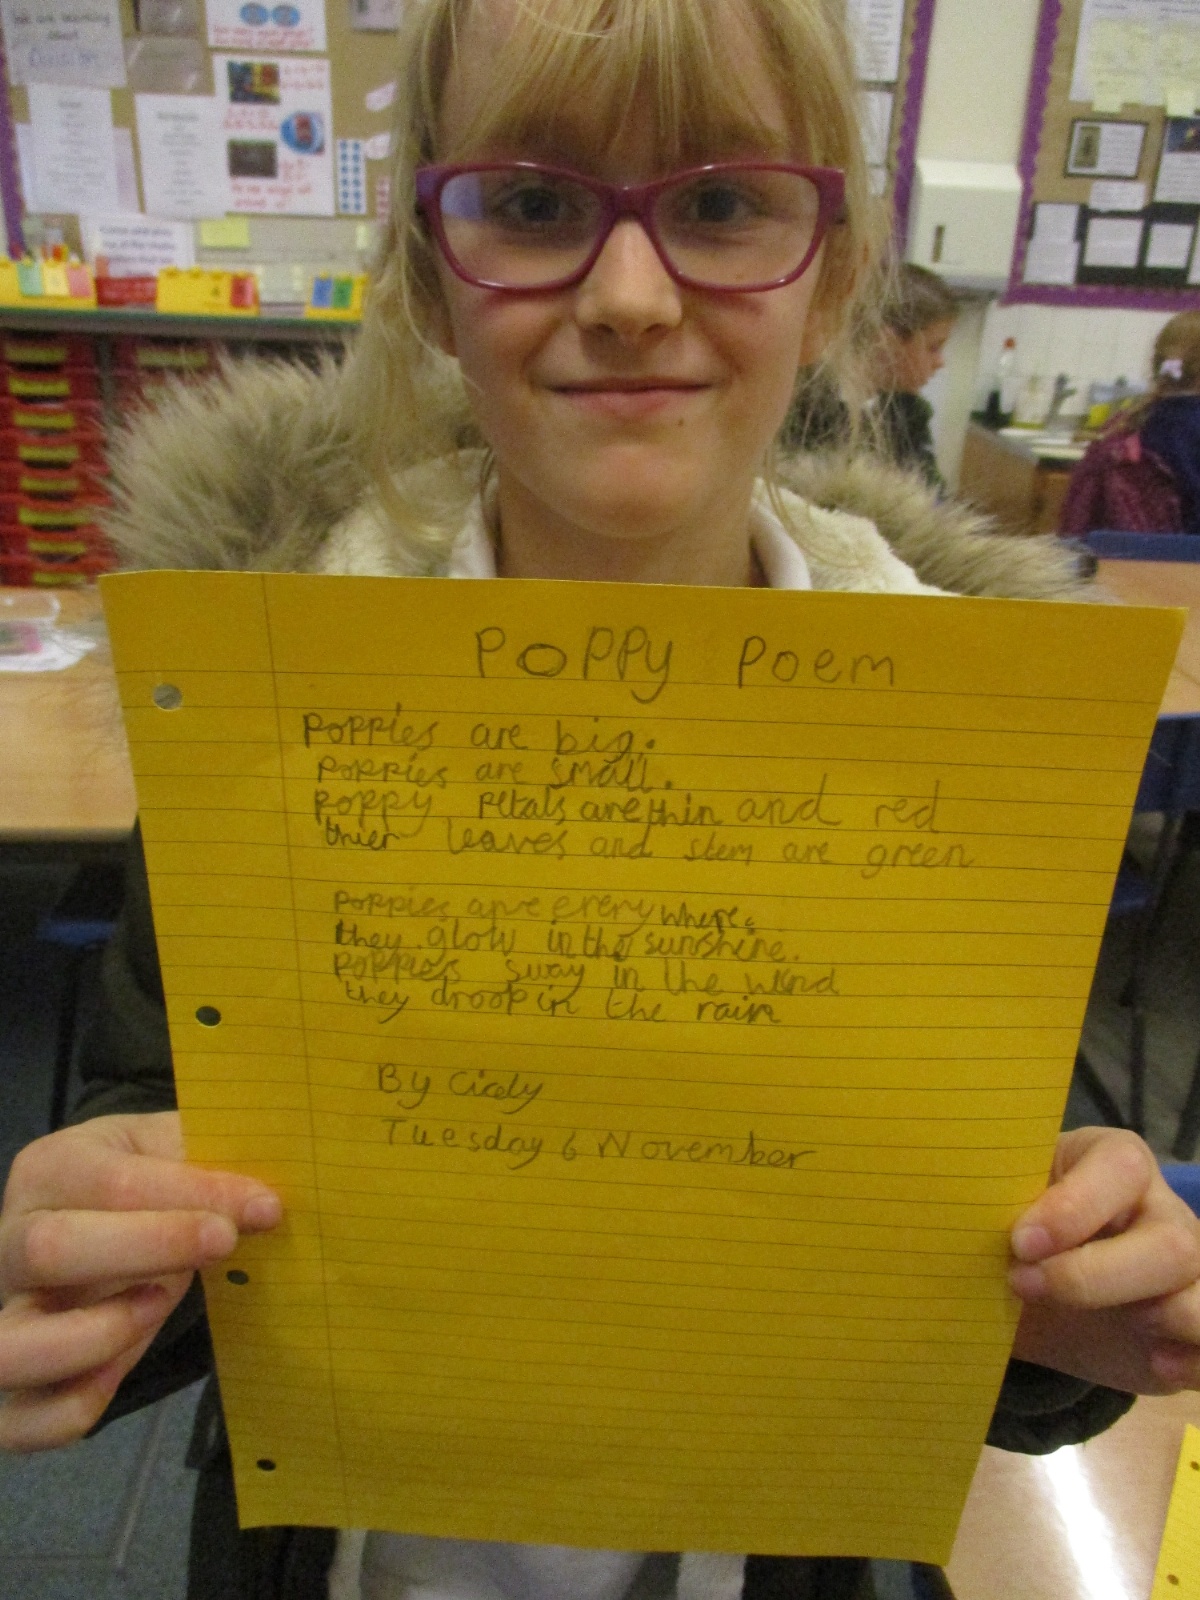 Poppy Poem
Poppies are big.
Poppies are small.
Poppy petals are thin and red
thier leaves and stem are green
Poppies are everywhere.
they glow in the sunshine.
Poppies sway in the wind
they droop in the rain
By Cicely
Tuesday 6 November